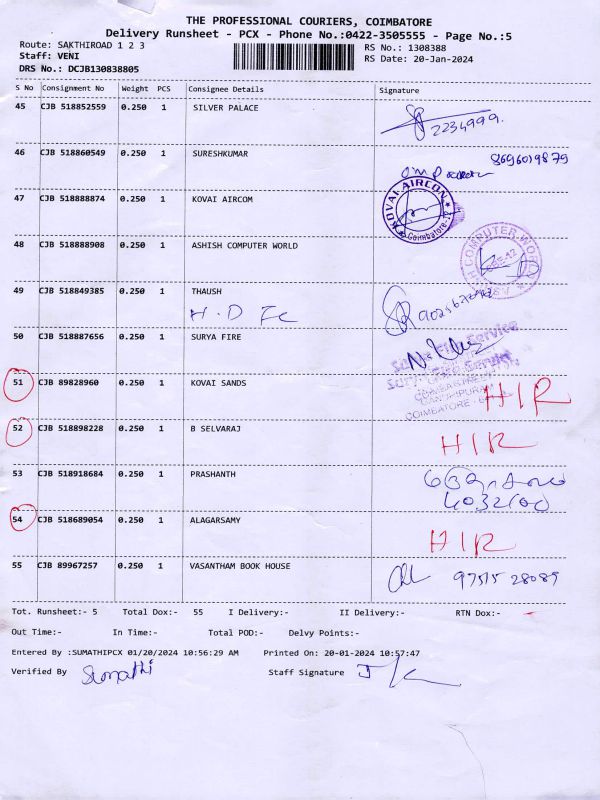 THE PROFESSIONAL COURIERS, COIMBATORE
Delivery Runsheet - PCX - Phone No.:0422-3505555 - Page No.:5
Route: SAKTHIROAD 1 2 3 RS No.: 1308388
Staff: VENI RS Date: 20-Jan-2024
DRS No.: DCJB130838805
S No Consignment No Weight PCS Consignee Details Signature
45 CJB 518852559 0.250 1 SILVER PALACE
2234999.
46 CJB 518860549 0.250 1 SURESHKUMAR
8696019879
47 CJB 518888874 0.250 1 KOVAI AIRCOM
KOVAI AIRCON
Coimbatore-12
48 CJB 518888908 0.250 1 ASHISH COMPUTER WORLD
COMPUTER WORLD
49 CJB 518849385 0.250 1 THAUSH
50 CJB 518887656 0.250 1 SURYA FIRE
GANDHIPURAM
COIMBATORE
51 CJB 89828960 0.250 1 KOVAI SANDS
HIR
52 CJB 518898228 0.250 1 B SELVARAJ
HIR
53 CJB 518918684 0.250 1 PRASHANTH
54 CJB 518689054 0.250 1 ALAGARSAMY
HIR
55 CJB 89967257 0.250 1 VASANTHAM BOOK HOUSE
97515 28089
Tot. Runsheet:- 5 Total Dox:- 55 I Delivery:- II Delivery:- RTN Dox:-
Out Time:- In Time:- Total POD:- Delvy Points:-
Entered By :SUMATHIPCX 01/20/2024 10:56:29 AM Printed On: 20-01-2024 10:57:47
Verified By Sumathi Staff Signature